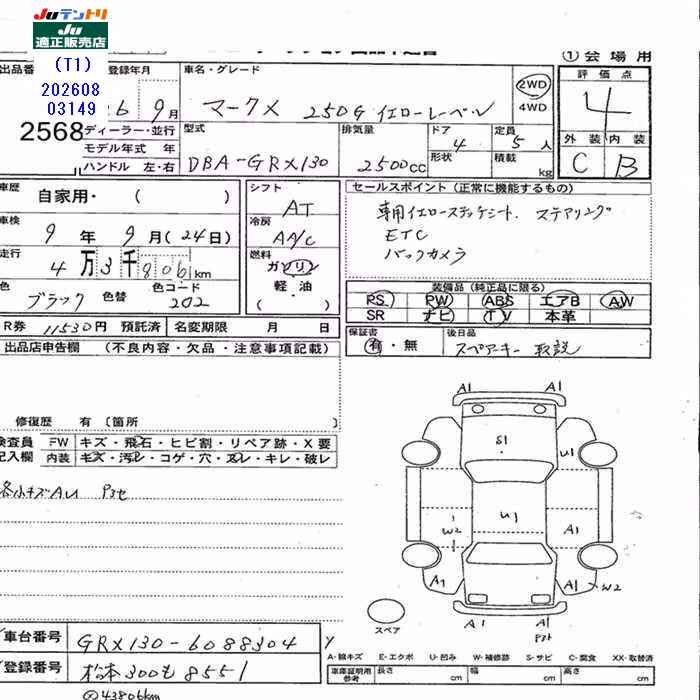 JUテントリ
JU
適正販売店
(T1)
202608
03149
2568
①会場用
出品番 登録年月 車名・グレード 評価点
26 9月 マークX 250G イエローレーベル 2WD 4WD 4
ディーラー・並行 型式 排気量 ドア 定員 外装 内装
モデル年式 年 DBA-GRX130 2500cc 4 5人 C B
ハンドル 左・右 形状 積載 kg
車歴 自家用・( ) シフト AT セールスポイント(正常に機能するもの)
車検 9年 9月(24日) 冷房 AA/C 専用イエローステッチシート、ステアリング
ETC
バックカメラ
走行 4万3千806km 燃料 ガソリン 軽油 ( )
色 ブラック 色替 色コード 202
装備品(純正品に限る)
PS PW ABS エアB AW
SR ナビ TV 本革
R券 11530円 預託済 名変期限 月 日
保証書 有・無 後日品 スペアキー 取説
出品店申告欄 (不良内容・欠品・注意事項記載)
修復歴 有〔箇所 〕
検査員 FW キズ・飛石・ヒビ割・リペア跡・X要
記入欄 内装 キズ・汚レ・コゲ・穴・スレ・キレ・破レ
各小キズAU
A1 A1
S1 U1
W2 U1 A1
A1 A1 W2
A1 A1
スペア
車台番号 GRX130-6088304
登録番号 松本300も8551
43806km
A-線キズ E-エクボ U-凹み W-補修跡 S-サビ C-腐食 XX-取替済
車庫証明用参考 長さ cm 幅 cm 高さ cm